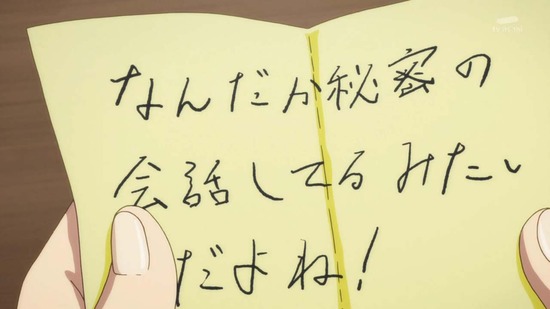 なんだか秘密の
会話してるみたい
だよね!